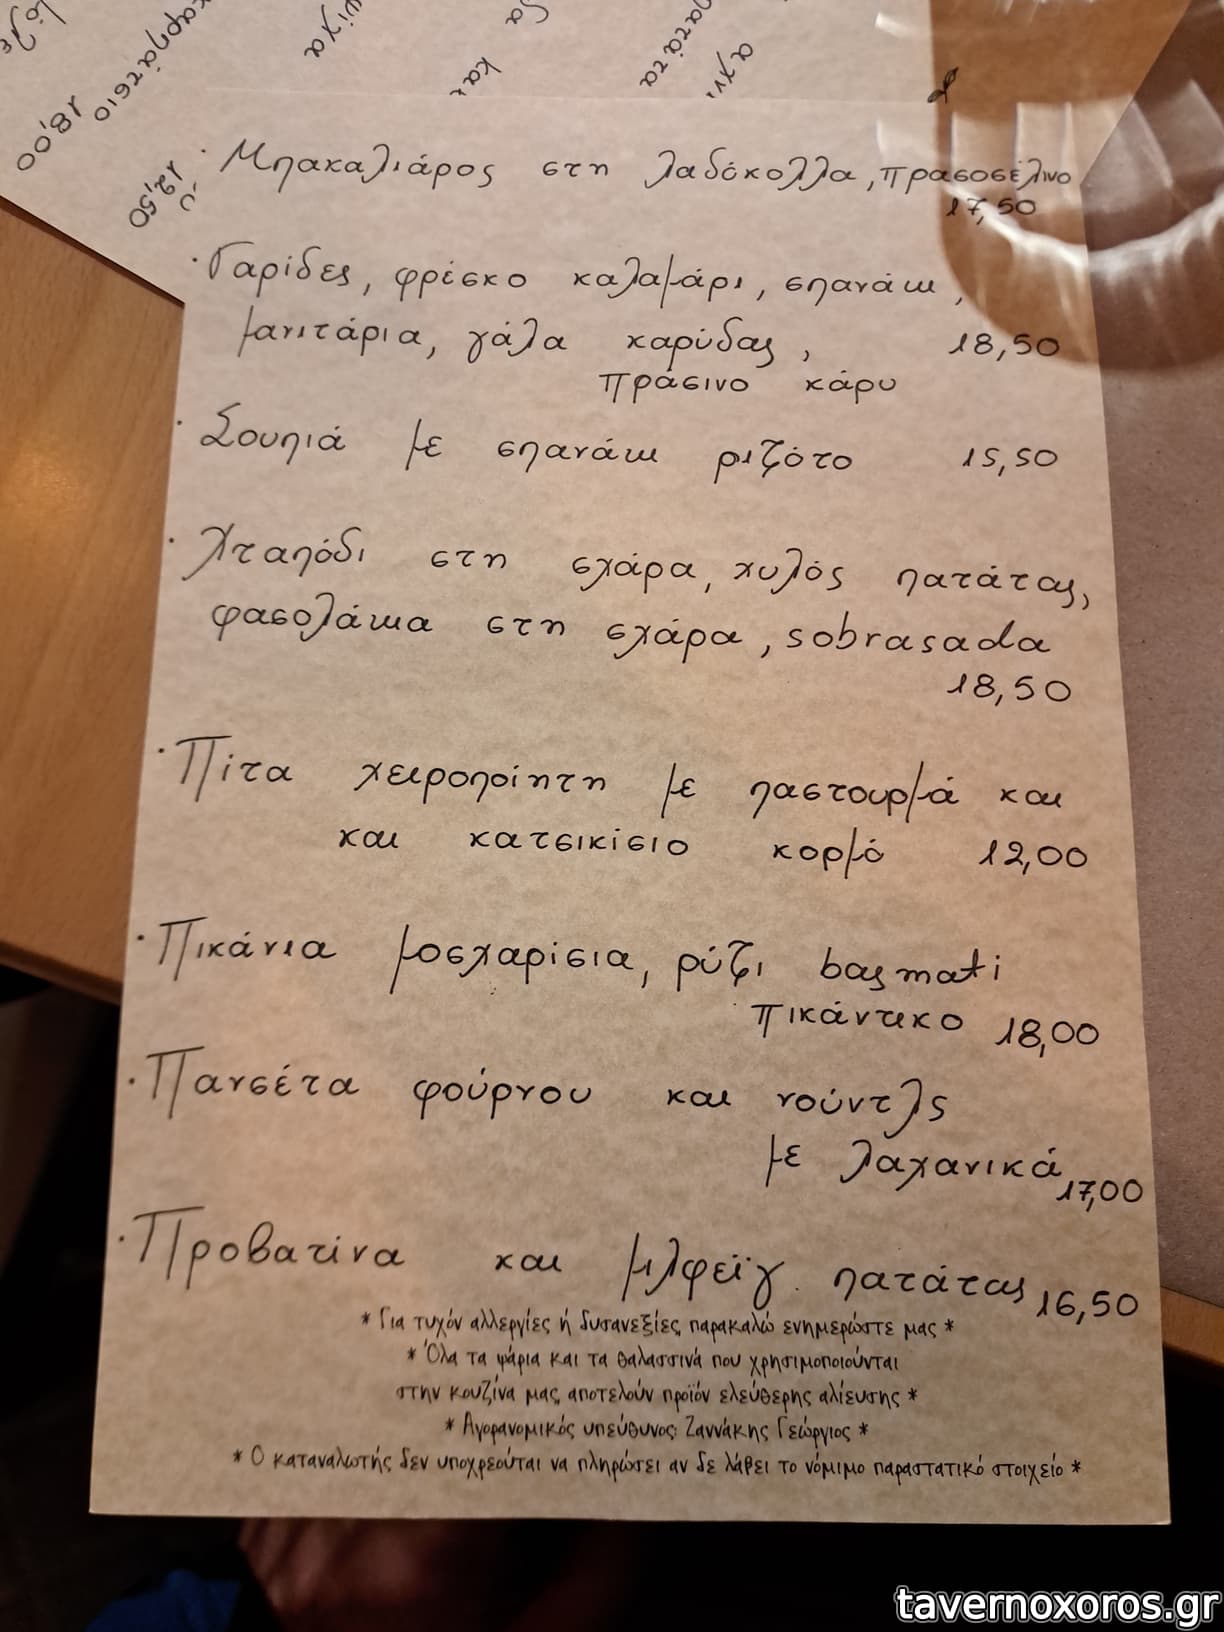 καρπάτσιο
18,00
12,50
και
πατάτα
αχνι
· Μπακαλιάρος στη λαδόκολλα, πρασοσέλινο
17,50
· Γαρίδες, φρέσκο καλαμάρι, σπανάκι,
μανιτάρια, γάλα καρύδας, 18,50
πράσινο κάρυ
· Σουπιά με σπανάκι ριζότο 15,50
· Χταπόδι στη σχάρα, χυλός πατάτας,
φασολάκια στη σχάρα, sobrasada
18,50
· Πίτα χειροποίητη με παστουρμά και
και κατσικίσιο κορμό 12,00
· Πικάνια μοσχαρίσια, ρύζι basmati
πικάντικο 18,00
· Πανσέτα φούρνου και νούντλς
με λαχανικά 17,00
· Προβατίνα και μιλφέιγ πατάτας 16,50
* Για τυχόν αλλεργίες ή δυσανεξίες, παρακαλώ ενημερώστε μας *
* Όλα τα ψάρια και τα θαλασσινά που χρησιμοποιούνται
στην κουζίνα μας, αποτελούν προϊόν ελεύθερης αλίευσης *
* Αγορανομικός υπεύθυνος: Ζαννάκης Γεώργιος *
* Ο καταναλωτής δεν υποχρεούται να πληρώσει αν δε λάβει το νόμιμο παραστατικό στοιχείο *
tavernoxoros.gr